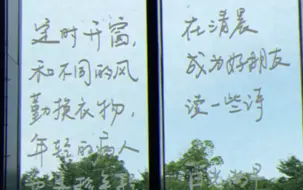 定时开窗，
和不同的风
勤换衣物，
年轻的病人
在清晨
成为好朋友
读一些诗